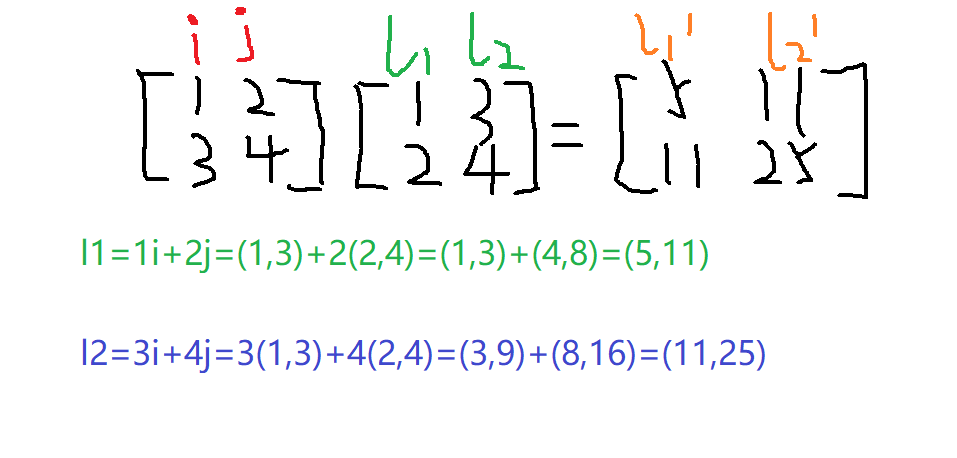 i j l1 l2 l1' l2'
[1 2 [1 3 = [5 11
3 4] 2 4] 11 25]
l1=1i+2j=(1,3)+2(2,4)=(1,3)+(4,8)=(5,11)
l2=3i+4j=3(1,3)+4(2,4)=(3,9)+(8,16)=(11,25)